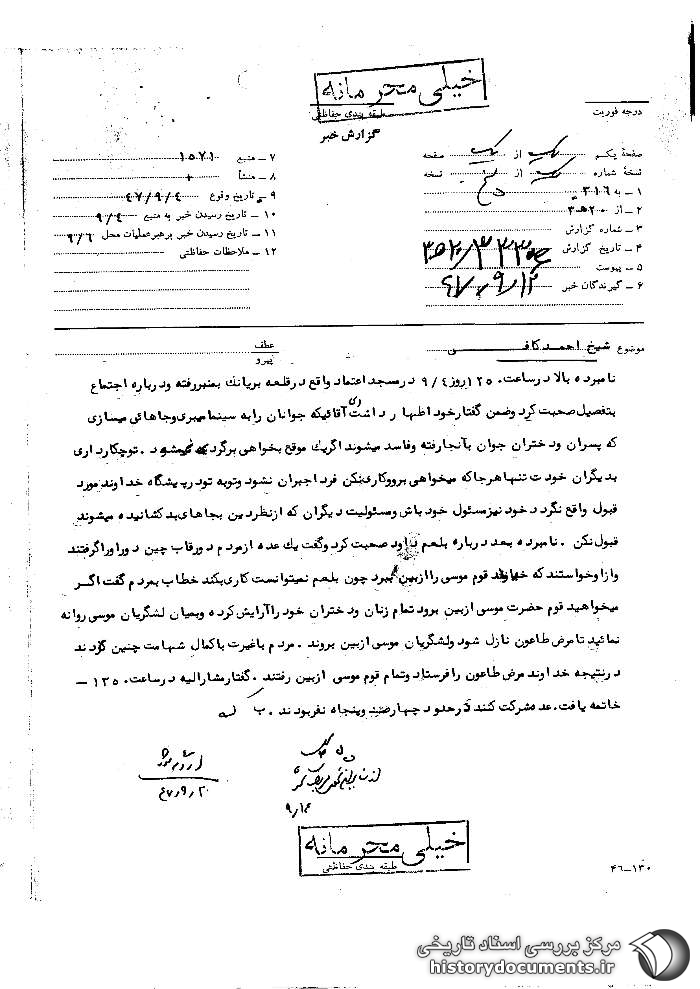 خیلی محرمانه
طبقه بندی حفاظتی
گزارش خبر
درجه فوریت
صفحهٔ یکم یک از یک صفحه
نسخهٔ شماره از نسخه
۱ ـ به ۳۱۶
۲ ـ از ۲۰ ه‍ ۳
۳ ـ شماره گزارش
۴ ـ تاریخ گزارش
۵ ـ پیوست
۶ ـ گیرندگان خبر
۴۷/۹/۱۲
۷ ـ منبع ۱۵۷۱
۸ ـ منشأ
۹ ـ تاریخ وقوع ۴۷/۹/۴
۱۰ ـ تاریخ رسیدن خبر به منبع ۹/۴
۱۱ ـ تاریخ رسیدن خبر برهبرعملیات محل ۹/۶
۱۲ ـ ملاحظات حفاظتی
موضوع شیخ احمد کافی
عطف
پیرو
نامبرده بالا در ساعت ۱۲۵۰ روز ۹/۴ در مسجد اعتماد واقع در قلعه بریانك بمنبر رفته و درباره اجتماع
بتفصیل صحبت کرد وضمن گفتار خود اظهار داشت ای آقائیکه جوانان را به سینما میبری وجاهائی میسازی
که پسران و دختران جوان بآنجا رفته وفاسد میشوند اگریك موقع بخواهی برگردی نمیشود . توچکارداری
بدیگران خودت تنها هرجاکه میخواهی برو وکاری نکن فردا جبران نشود وتوبه تو در پیشگاه خداوند مورد
قبول واقع نگردد خود نیز مسئول خود باش ومسئولیت دیگران که ازنظر دین بجاهای بد کشانیده میشوند
قبول نکن . نامبرده بعد درباره بلعم صحبت کرد وگفت یك عده ازمردم دور قاب چین دور اورا گرفتند
وازاوخواستند که قوم موسی را ازبین ببرد چون بلعم نمیتوانست کاری بکند خطاب بمردم گفت اگر
میخواهید قوم حضرت موسی ازبین برود تمام زنان ودختران خود را آرایش کرده وبمیان لشگریان موسی روانه
نمائید تا مرض طاعون نازل شود ولشگریان موسی ازبین بروند . مردم باغیرت باکمال شهامت چنین کردند
درنتیجه خداوند مرض طاعون را فرستاد وتمام قوم موسی ازبین رفتند . گفتار مشارالیه در ساعت ۱۳۵۰ ـ
خاتمه یافت . عده شرکت کننده درحدود چهارصد وپنجاه نفر بودند .
۹/۱۴
۴۷/۹/۲۰
خیلی محرمانه
طبقه بندی حفاظتی
۴۶ـ۱۳۰
مرکز بررسی اسناد تاریخی
historydocuments.ir